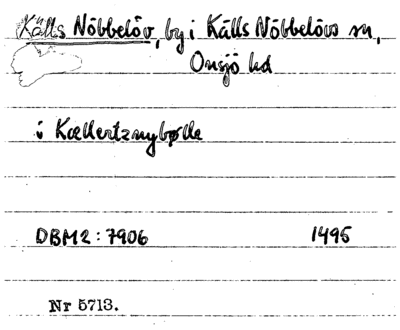 Källs Nöbbelöv, by i Källs Nöbbelövs sn,
Onsjö hd
i Kællertznybølle
DBM2:7906 1495
Nr 5713.